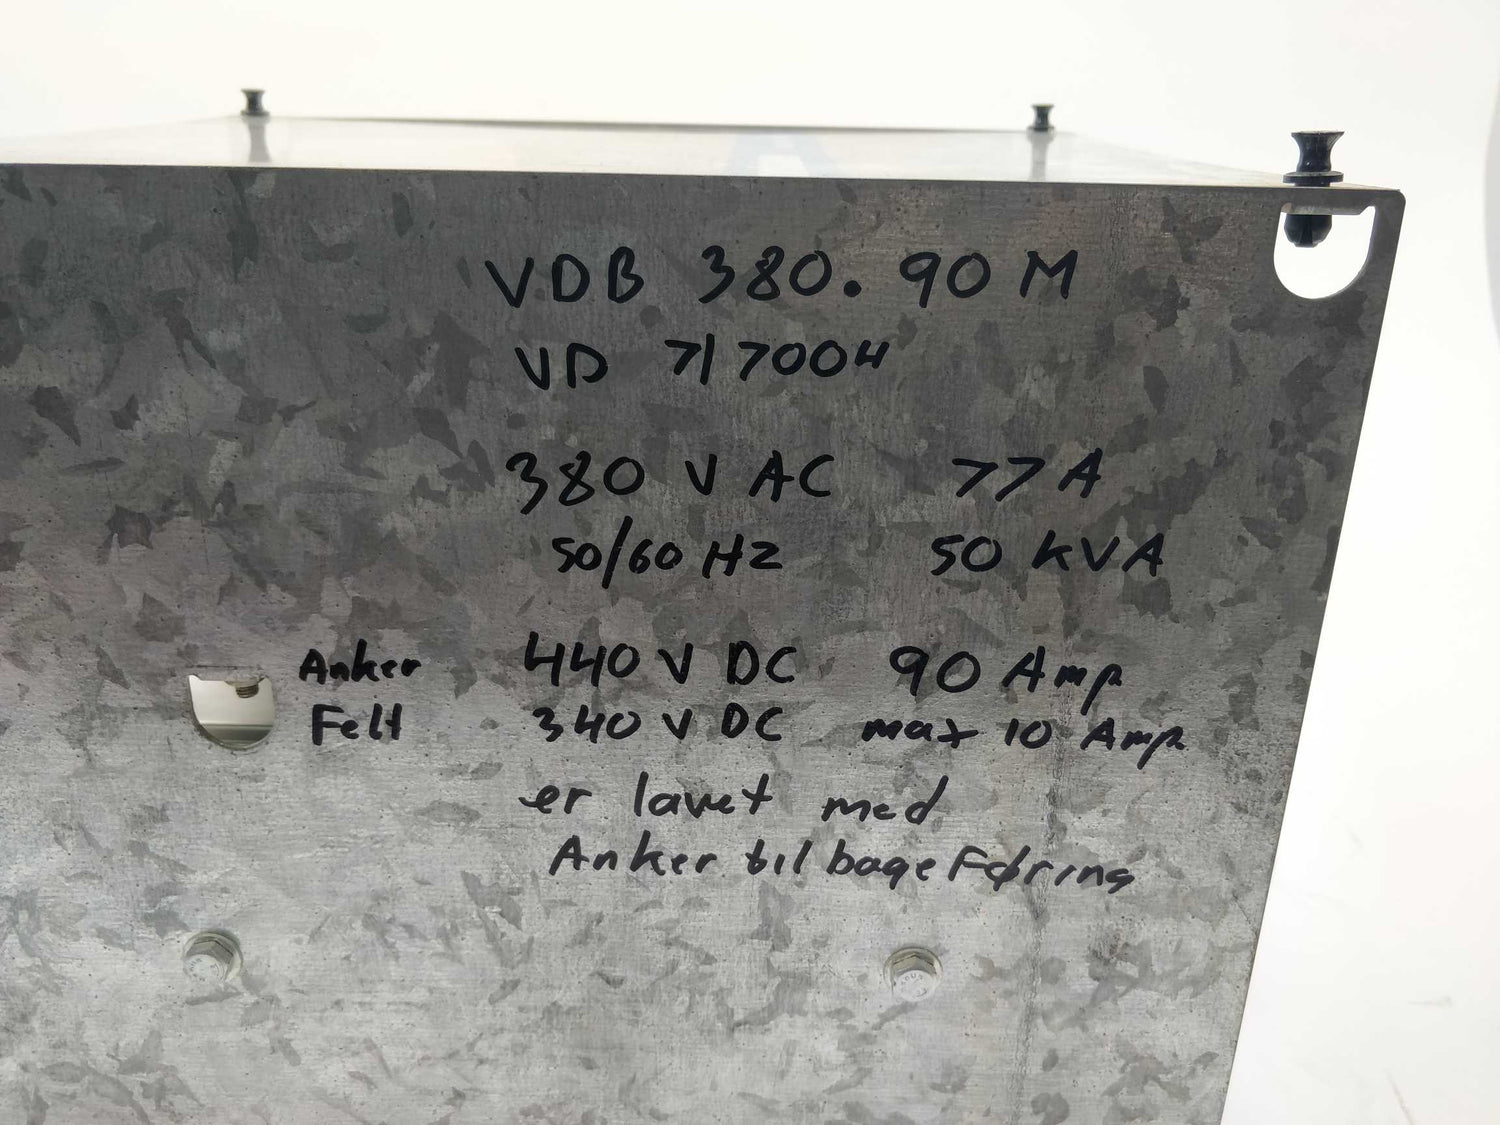 VDB 380.90 M
VD 7/7004
380 V AC 77 A
50/60 HZ 50 kVA
Anker 440 V DC 90 Amp
Felt 340 V DC max 10 Amp
er lavet med
Anker tilbageføring